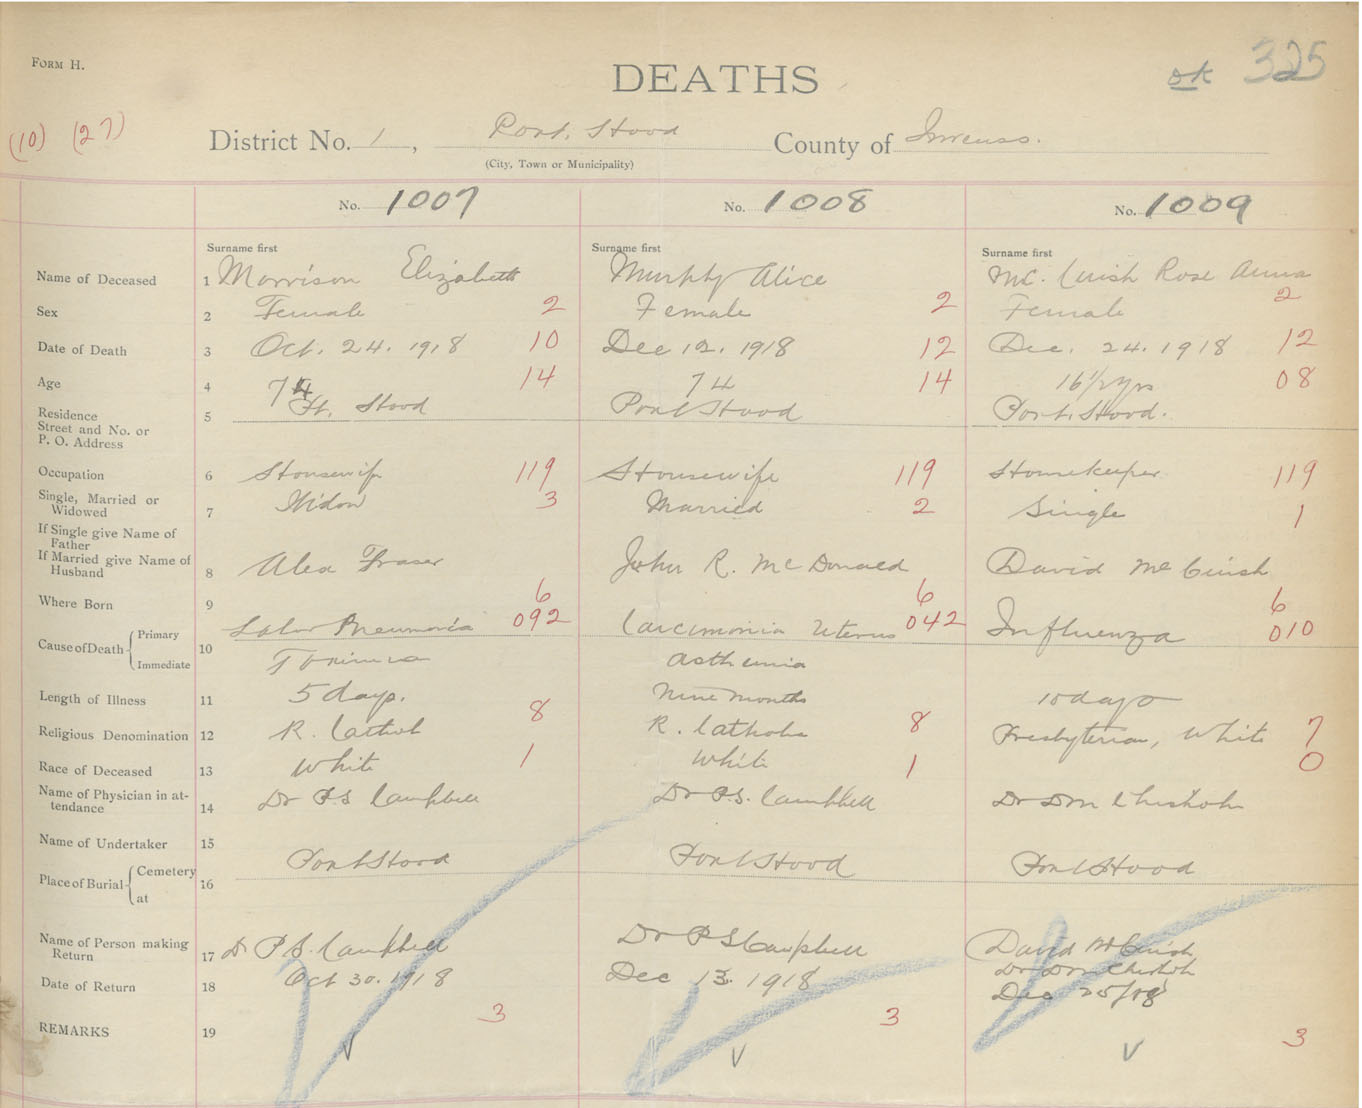 FORM H.
DEATHS
ok 325
(10) (27)
District No. 1, Port Hood County of Inverness.
(City, Town or Municipality)
No. 1007 No. 1008 No. 1009
Surname first Surname first Surname first
Name of Deceased 1 Morrison Elizabeth Murphy Alice Mc. Rose Anna
Sex 2 Female 2 Female 2 Female 2
Date of Death 3 Oct. 24. 1918 10 Dec 12. 1918 12 Dec. 24. 1918 12
Age 4 74 14 74 14 16 1/2 yrs 08
Residence
Street and No. or
P. O. Address 5 Pt. Hood Port Hood Port. Hood.
Occupation 6 Housewife 119 Housewife 119 Homekeeper 119
Single, Married or
Widowed 7 Widow 3 Married 2 Single 1
If Single give Name of
Father
If Married give Name of
Husband 8 Alex Fraser John R. McDonald David Mc
Where Born 9 6 6 6
Cause of Death { Primary 10 Lobar Pneumonia 092 Carcimonia Uterus 042 Influenza 010
Immediate Asthenia
Length of Illness 11 5 days. Nine months 10 days
Religious Denomination 12 R. Cathol 8 R. Catholic 8 Presbyterian, White 7
Race of Deceased 13 White 1 White 1 0
Name of Physician in at-
tendance 14 Dr P.S. Campbell Dr P.S. Campbell Dr D M Chisholm
Name of Undertaker 15
Place of Burial { Cemetery 16 Port Hood Port Hood Port Hood
at
Name of Person making
Return 17 Dr P.S. Campbell Dr P S Campbell David Mc
Dr D M Chisholm
Date of Return 18 Oct 30. 1918 Dec 13. 1918 Dec 25/18
REMARKS 19 3 3 3